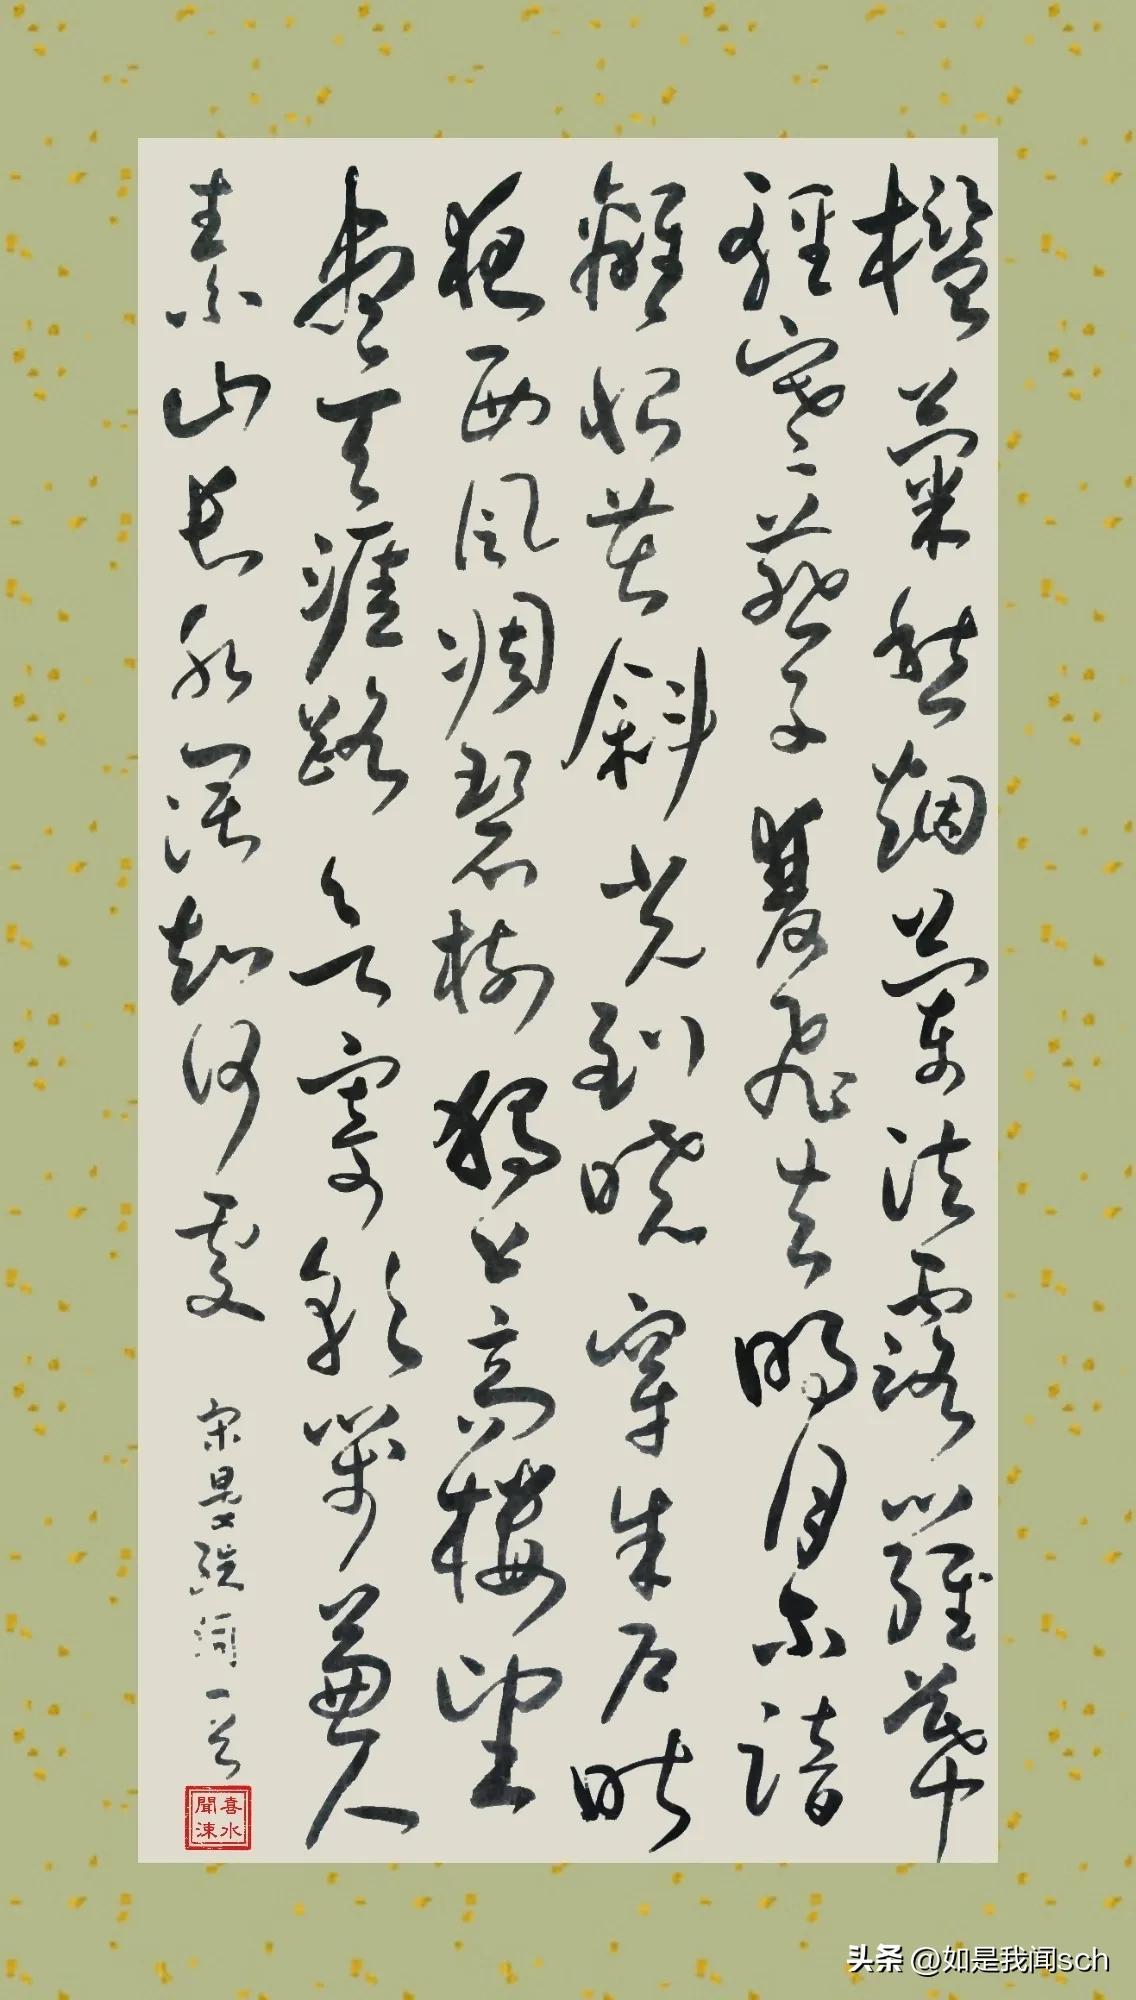 檻菊愁烟蘭泣露羅幕
輕寒燕子雙飛去明月不諳
離恨苦斜光到曉穿朱户昨
夜西風凋碧樹獨上高樓望
盡天涯路欲寄彩箋兼尺
素山長水闊知何處
宋晏殊詞一首
喜水
聞涑
头条 @如是我闻sch